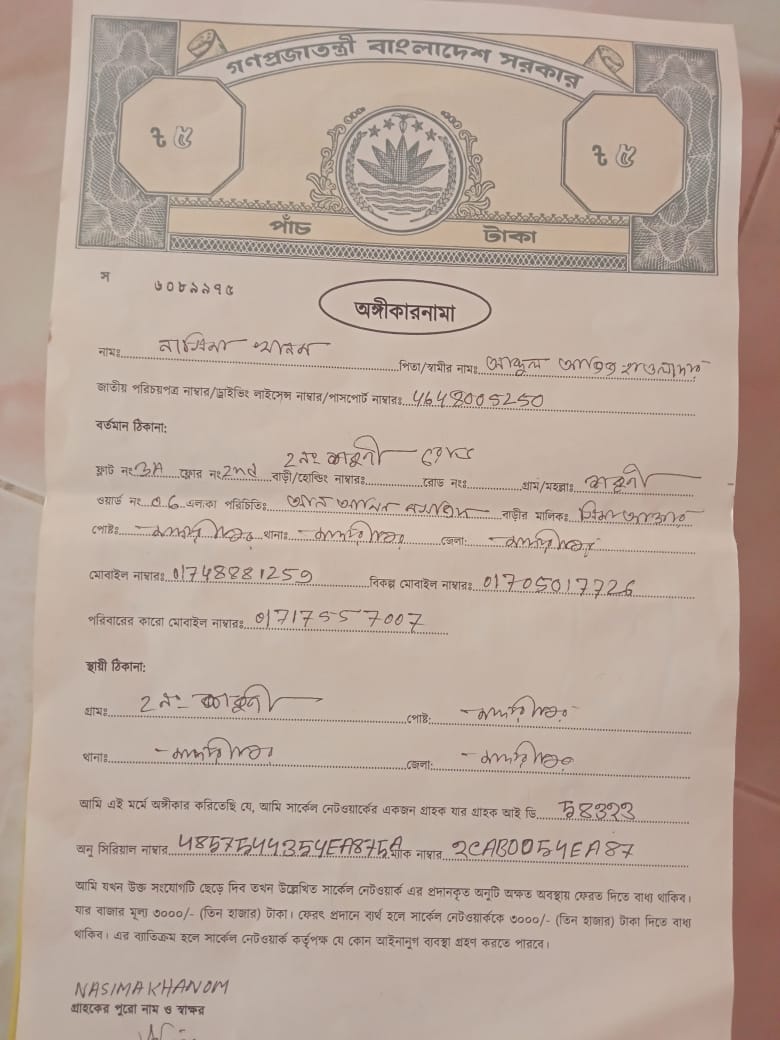 গণপ্রজাতন্ত্রী বাংলাদেশ সরকার
৳ ৫ ৳ ৫
পাঁচ টাকা
স ৬০৮৯৯৭৫
অঙ্গীকারনামা
নামঃ নাসিমা খানম পিতা/স্বামীর নামঃ
জাতীয় পরিচয়পত্র নাম্বার/ড্রাইভিং লাইসেন্স নাম্বার/পাসপোর্ট নাম্বারঃ 4648005250
বর্তমান ঠিকানা:
ফ্লাট নং 3A ফ্লোর নং 2nd বাড়ী/হোল্ডিং নাম্বারঃ 2 নং রোড নংঃ গ্রাম/মহল্লাঃ
ওয়ার্ড নং 06 এলাকা পরিচিতিঃ বাড়ীর মালিকঃ
পোষ্টঃ থানাঃ জেলা:
মোবাইল নাম্বারঃ 01748881259 বিকল্প মোবাইল নাম্বারঃ 01705017726
পরিবারের কারো মোবাইল নাম্বারঃ 01717557007
স্থায়ী ঠিকানা:
গ্রামঃ 2 নং পোষ্ট:
থানাঃ জেলা:
আমি এই মর্মে অঙ্গীকার করিতেছি যে, আমি সার্কেল নেটওয়ার্কের একজন গ্রাহক যার গ্রাহক আই ডি 58323
অনু সিরিয়াল নাম্বার 4857544354EA875A ম্যাক নাম্বার 2CAB0054EA87
আমি যখন উক্ত সংযোগটি ছেড়ে দিব তখন উল্লেখিত সার্কেল নেটওয়ার্ক এর প্রদানকৃত অনুটি অক্ষত অবস্থায় ফেরত দিতে বাধ্য থাকিব।
যার বাজার মূল্য ৩০০০/- (তিন হাজার) টাকা। ফেরৎ প্রদানে ব্যর্থ হলে সার্কেল নেটওয়ার্ককে ৩০০০/- (তিন হাজার) টাকা দিতে বাধ্য
থাকিব। এর ব্যাতিক্রম হলে সার্কেল নেটওয়ার্ক কর্তৃপক্ষ যে কোন আইনানুগ ব্যবস্থা গ্রহণ করতে পারবে।
NASIMA KHANOM
গ্রাহকের পুরো নাম ও স্বাক্ষর